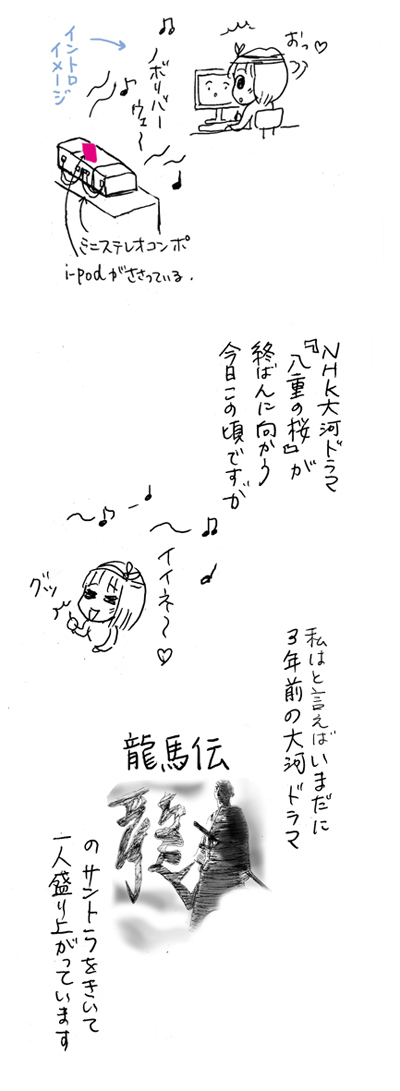 おっ♡
イントロ
イメージ
ノボリバー
ウェ〜
ミニステレオコンポ
i-podがささっている.
NHK大河ドラマ
『八重の桜』が
終ばんに向かう
今日この頃ですが
イイネ〜♡
グッ
私はと言えばいまだに
3年前の大河ドラマ
龍馬伝
龍
のサントラをきいて
一人盛り上がっています